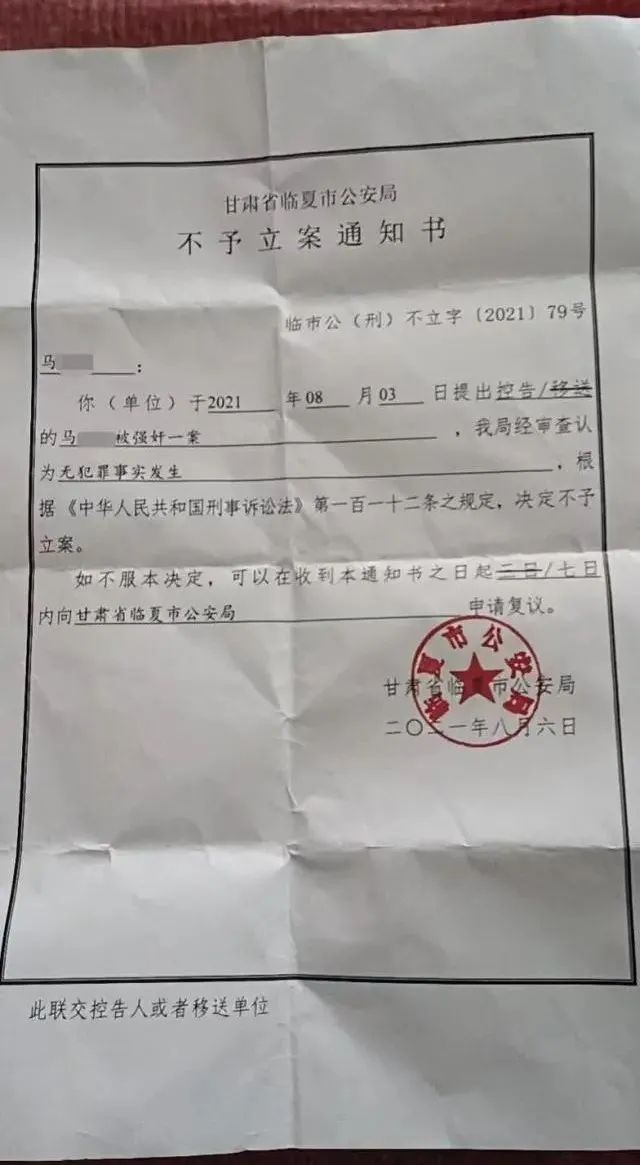 甘肃省临夏市公安局
不予立案通知书
临市公（刑）不立字〔2021〕79号
马 ：
你（单位）于2021 年 08 月 03 日提出控告/移送
的马 被强奸一案 ，我局经审查认
为无犯罪事实发生 ，根
据《中华人民共和国刑事诉讼法》第一百一十二条之规定，决定不予
立案。
如不服本决定，可以在收到本通知书之日起三日/七日
内向甘肃省临夏市公安局 申请复议。
临夏市公安局
甘肃省临夏市公安局
二〇二一年八月六日
此联交控告人或者移送单位